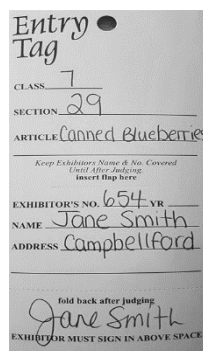 Entry
Tag
CLASS 7
SECTION 29
ARTICLE Canned Blueberries
Keep Exhibitors Name & No. Covered
Until After Judging.
insert flap here
EXHIBITOR'S NO. 654 YR
NAME Jane Smith
ADDRESS Campbellford
fold back after judging
Jane Smith
EXHIBITOR MUST SIGN IN ABOVE SPACE